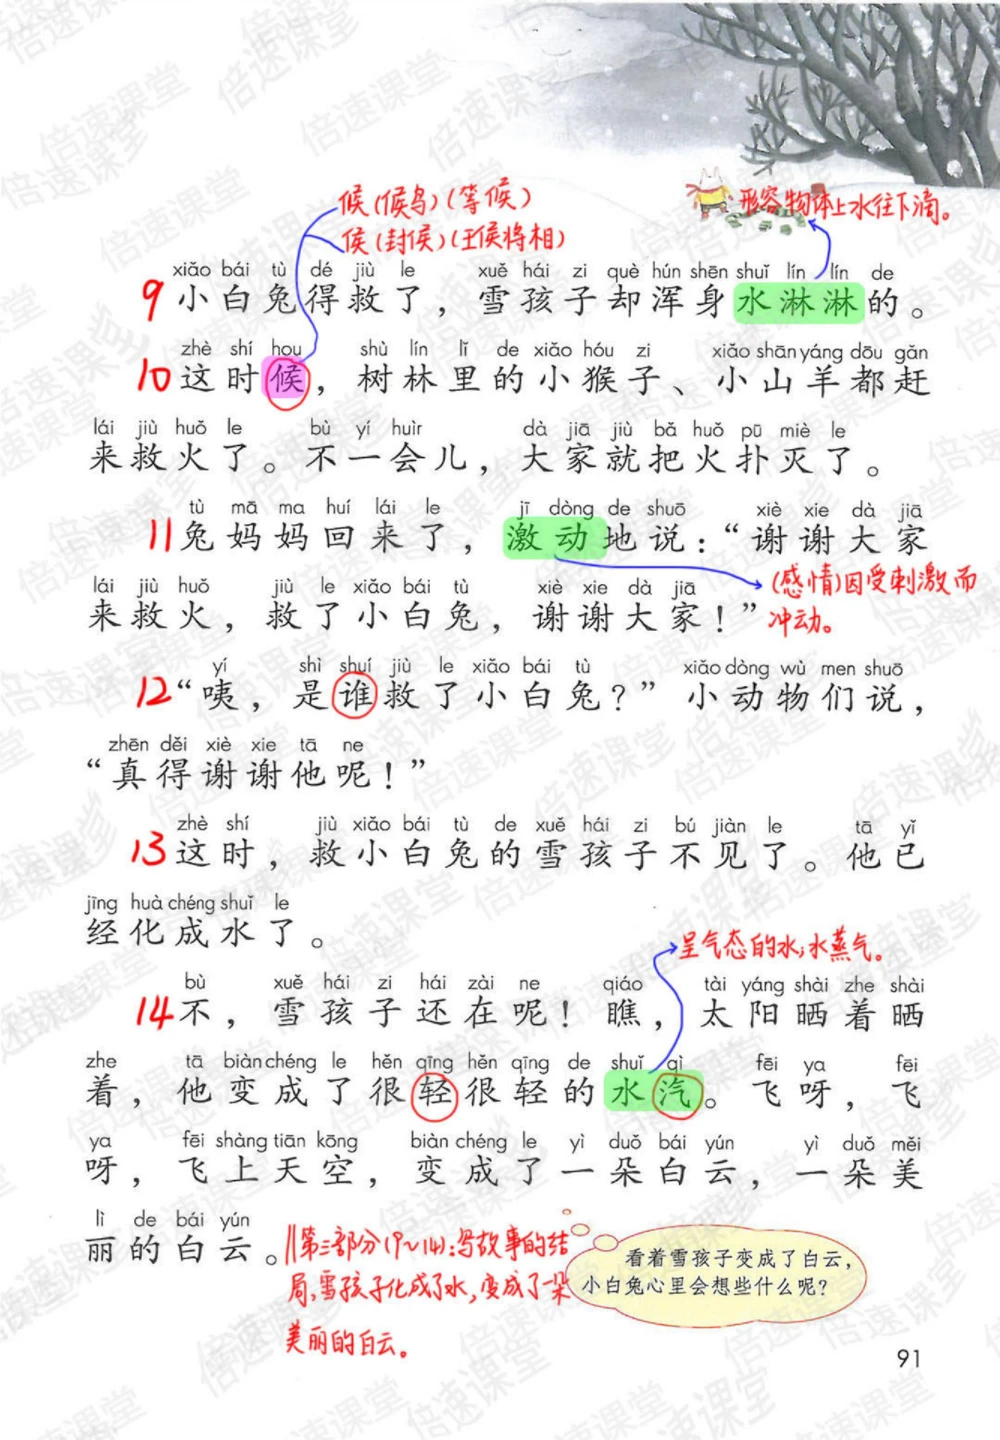 候(候鸟)(等候)
侯(封侯)(王侯将相)
形容物体上水往下滴。
xiǎo bái tù dé jiù le xuě hái zi què hún shēn shuǐ lín lín de
9 小白兔得救了，雪孩子却浑身水淋淋的。
zhè shí hou shù lín lǐ de xiǎo hóu zi xiǎo shān yáng dōu gǎn
10 这时候，树林里的小猴子、小山羊都赶
lái jiù huǒ le bù yí huìr dà jiā jiù bǎ huǒ pū miè le
来救火了。不一会儿，大家就把火扑灭了。
tù mā ma huí lái le jī dòng de shuō xiè xie dà jiā
11 兔妈妈回来了，激动地说：“谢谢大家
lái jiù huǒ jiù le xiǎo bái tù xiè xie dà jiā
来救火，救了小白兔，谢谢大家！”
(感情)因受刺激而
冲动。
yí shì shuí jiù le xiǎo bái tù xiǎo dòng wù men shuō
12 “咦，是谁救了小白兔？”小动物们说，
zhēn děi xiè xie tā ne
“真得谢谢他呢！”
zhè shí jiù xiǎo bái tù de xuě hái zi bú jiàn le tā yǐ
13 这时，救小白兔的雪孩子不见了。他已
jīng huà chéng shuǐ le
经化成水了。
呈气态的水；水蒸气。
bù xuě hái zi hái zài ne qiáo tài yáng shài zhe shài
14 不，雪孩子还在呢！瞧，太阳晒着晒
zhe tā biàn chéng le hěn qīng hěn qīng de shuǐ qì fēi ya fēi
着，他变成了很轻很轻的水汽。飞呀，飞
ya fēi shàng tiān kōng biàn chéng le yì duǒ bái yún yì duǒ měi
呀，飞上天空，变成了一朵白云，一朵美
lì de bái yún
丽的白云。
‖第三部分(9~14)：写故事的结
局，雪孩子化成了水，变成了一朵
美丽的白云。
看着雪孩子变成了白云，
小白兔心里会想些什么呢？
91
倍速课堂